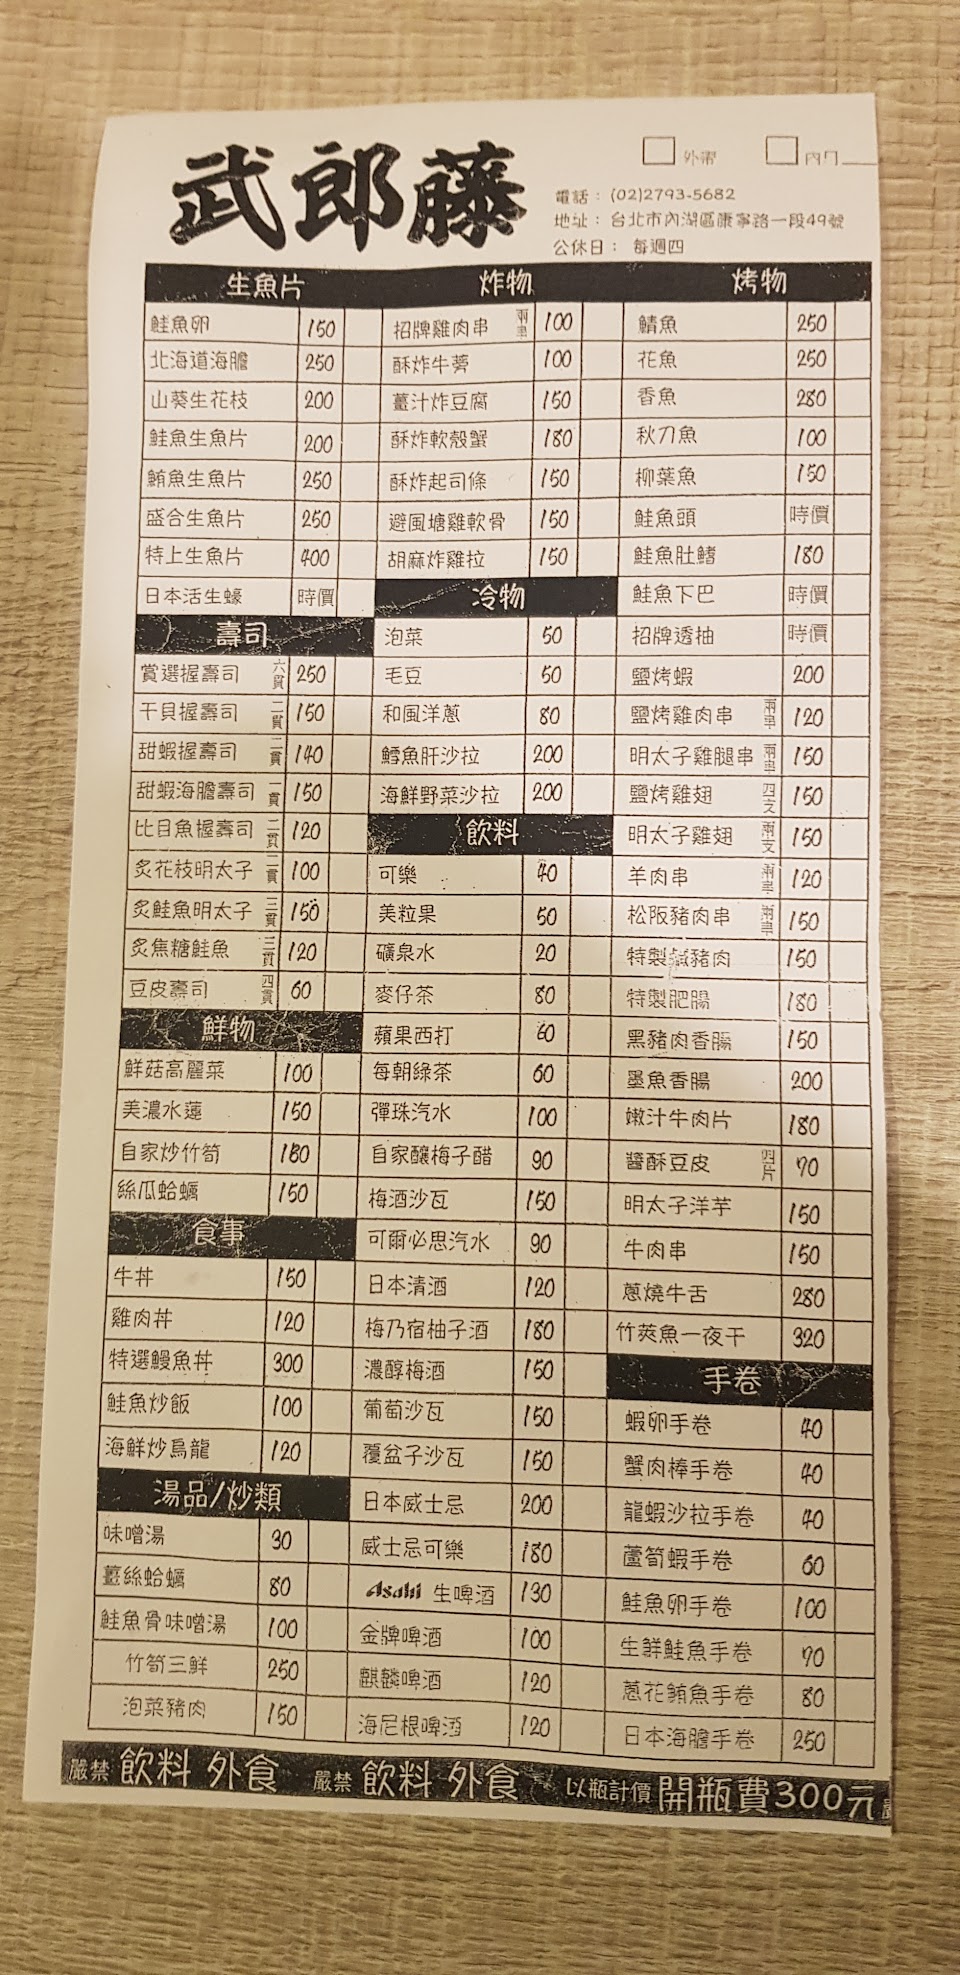 武郎藤
外帶 內用
電話：(02)2793-5682
地址：台北市內湖區康寧路一段49號
公休日： 每週四
生魚片
鮭魚卵 150
北海道海膽 250
山葵生花枝 200
鮭魚生魚片 200
鮪魚生魚片 250
盛合生魚片 250
特上生魚片 400
日本活生蠔 時價
壽司
賞選握壽司 六貫 250
干貝握壽司 二貫 150
甜蝦握壽司 二貫 140
甜蝦海膽壽司 一貫 150
比目魚握壽司 二貫 120
炙花枝明太子 二貫 100
炙鮭魚明太子 三貫 150
炙焦糖鮭魚 三貫 120
豆皮壽司 四貫 60
鮮物
鮮菇高麗菜 100
美濃水蓮 150
自家炒竹筍 180
絲瓜蛤蠣 150
食事
牛丼 150
雞肉丼 120
特選鰻魚丼 300
鮭魚炒飯 100
海鮮炒烏龍 120
湯品/炒類
味噌湯 30
薑絲蛤蠣 80
鮭魚骨味噌湯 100
竹筍三鮮 250
泡菜豬肉 150
炸物
招牌雞肉串 兩串 100
酥炸牛蒡 100
薑汁炸豆腐 150
酥炸軟殼蟹 180
酥炸起司條 150
避風塘雞軟骨 150
胡麻炸雞拉 150
冷物
泡菜 50
毛豆 50
和風洋蔥 80
鱈魚肝沙拉 200
海鮮野菜沙拉 200
飲料
可樂 40
美粒果 50
礦泉水 20
麥仔茶 80
蘋果西打 60
每朝綠茶 60
彈珠汽水 100
自家釀梅子醋 90
梅酒沙瓦 150
可爾必思汽水 90
日本清酒 120
梅乃宿柚子酒 180
濃醇梅酒 150
葡萄沙瓦 150
覆盆子沙瓦 150
日本威士忌 200
威士忌可樂 180
Asahi 生啤酒 130
金牌啤酒 100
麒麟啤酒 120
海尼根啤酒 120
烤物
鯖魚 250
花魚 250
香魚 280
秋刀魚 100
柳葉魚 150
鮭魚頭 時價
鮭魚肚鰭 180
鮭魚下巴 時價
招牌透抽 時價
鹽烤蝦 200
鹽烤雞肉串 兩串 120
明太子雞腿串 兩串 150
鹽烤雞翅 四支 150
明太子雞翅 兩支 150
羊肉串 兩串 120
松阪豬肉串 兩串 150
特製鹹豬肉 150
特製肥腸 180
黑豬肉香腸 150
墨魚香腸 200
嫩汁牛肉片 180
醬酥豆皮 四片 70
明太子洋芋 150
牛肉串 150
蔥燒牛舌 280
竹莢魚一夜干 320
手卷
蝦卵手卷 40
蟹肉棒手卷 40
龍蝦沙拉手卷 40
蘆筍蝦手卷 60
鮭魚卵手卷 100
生鮮鮭魚手卷 70
蔥花鮪魚手卷 80
日本海膽手卷 250
嚴禁 飲料 外食 嚴禁 飲料 外食 以瓶計價 開瓶費300元